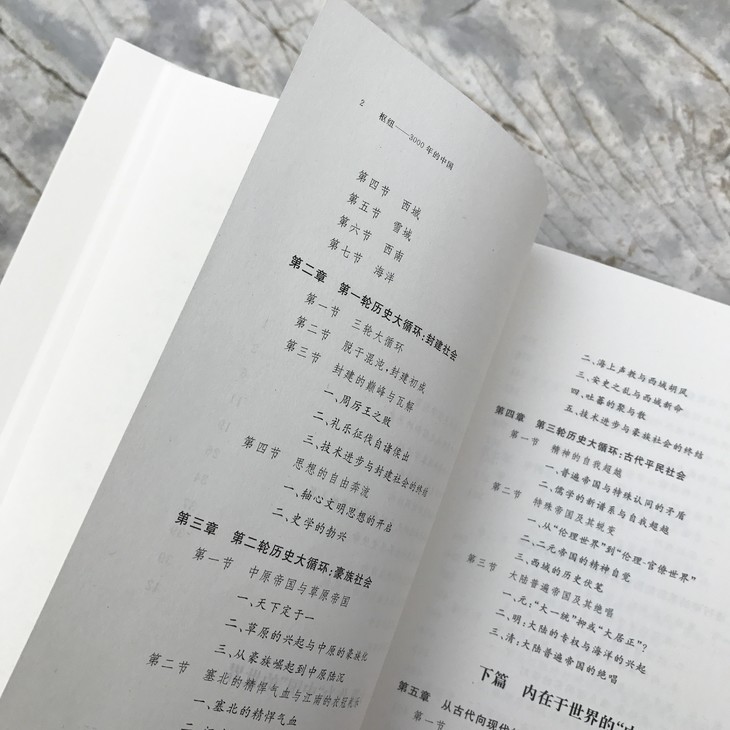 2 枢纽——3000年的中国
第四节 西域
第五节 雪域
第六节 西南
第七节 海洋
第二章 第一轮历史大循环:封建社会
第一节 三轮大循环
第二节 脱于混沌,封建初成
第三节 封建的巅峰与瓦解
一、周厉王之败
二、礼乐征伐自诸侯出
三、技术进步与封建社会的终结
第四节 思想的自由奔流
一、轴心文明思想的开启
二、史学的勃兴
第三章 第二轮历史大循环:豪族社会
第一节 中原帝国与草原帝国
一、天下定于一
二、草原的兴起与中原的豪族化
三、从豪族崛起到中原陆沉
第二节 塞北的精悍气血与江南的衣冠
一、塞北的精悍气血
二、海上声教与西域胡风
三、安史之乱与西域新命
四、吐蕃的聚与散
五、技术进步与豪族社会的终结
第四章 第三轮历史大循环:古代平民社会
第一节 精神的自我超越
一、普遍帝国与特殊认同的矛盾
二、儒学的新谱系与自我超越
第二节 特殊帝国及其蜕变
一、从“伦理世界”到“伦理-官僚世界”
二、二元帝国的精神自觉
三、西域的历史伏笔
第三节 大陆普遍帝国及其绝唱
一、元:“大一统”抑或“大居正”?
二、明:大陆的专权与海洋的兴起
三、清:大陆普遍帝国的绝唱
下篇 内在于世界的“
第五章 从古代向现代
第一节